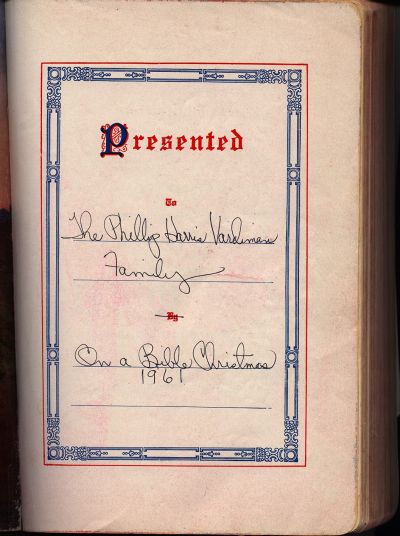 Presented
To
The Phillip Harris Vardiman
Family
By
On a Bible Christmas
1961